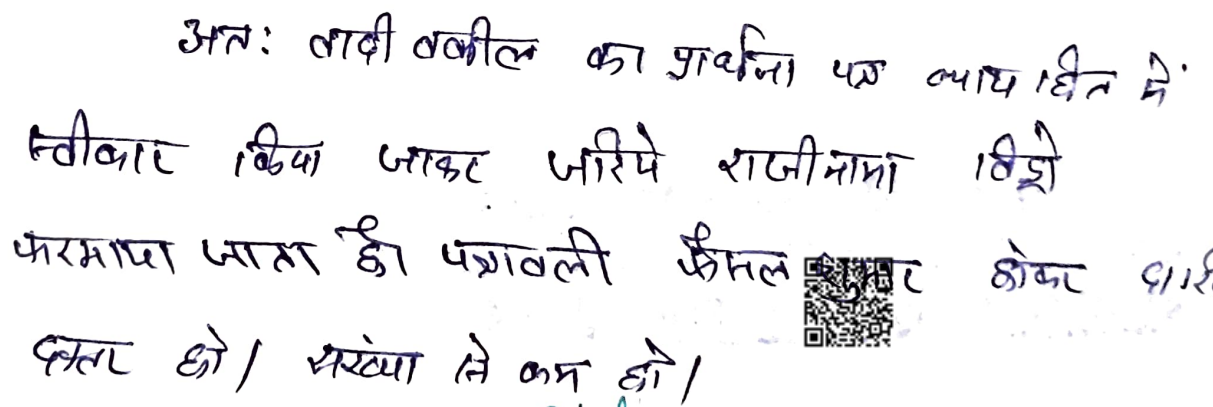 अतः वादी वकील का प्रार्थना पत्र न्याय हित में
स्वीकार किया जाकर जरिये राजीनामा विड्रो
फरमाया जाता है। पत्रावली फैसल शुमार होकर दाखि
दफ्तर हो। संख्या से कम हो।